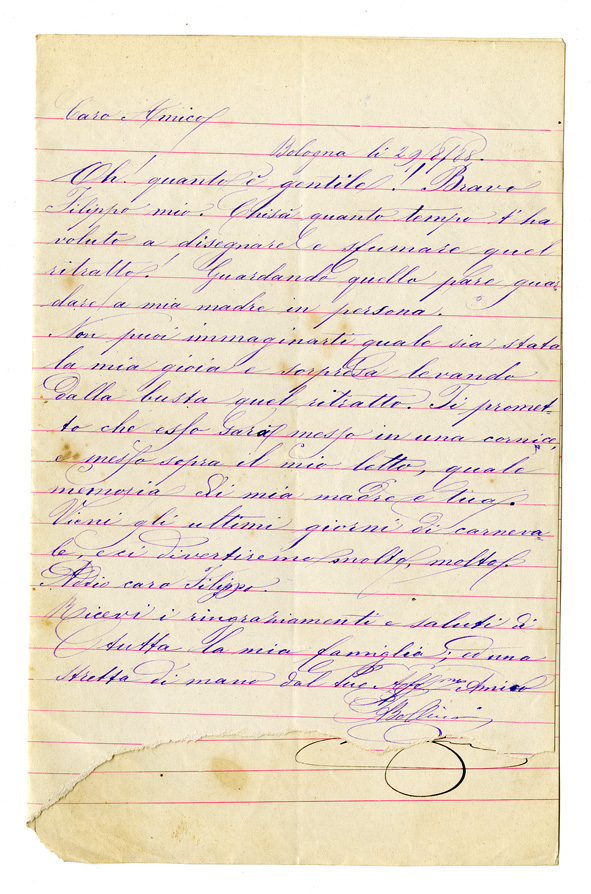 Caro Amico
Bologna li 29/8/88.
Oh! quanto è gentile! Bravo
Filippo mio. Chisà quanto tempo t'ha
voluto a disegnare e sfumare quel
ritratto! Guardando quello pare guar-
dare a mia madre in persona.
Non puoi immaginarti quale sia stata
la mia gioia e sorpresa levando
dalla busta quel ritratto. Ti promet-
to che esso sarà messo in una cornice,
e messo sopra il mio letto, quale
memoria di mia madre e tua.
Vieni gli ultimi giorni di carneva-
le, e ci divertiremo molto, molto.
Addio caro Filippo.
Ricevi i ringraziamenti e saluti di
tutta la mia famiglia; ed una
stretta di mano dal tuo Aff.mo Amico